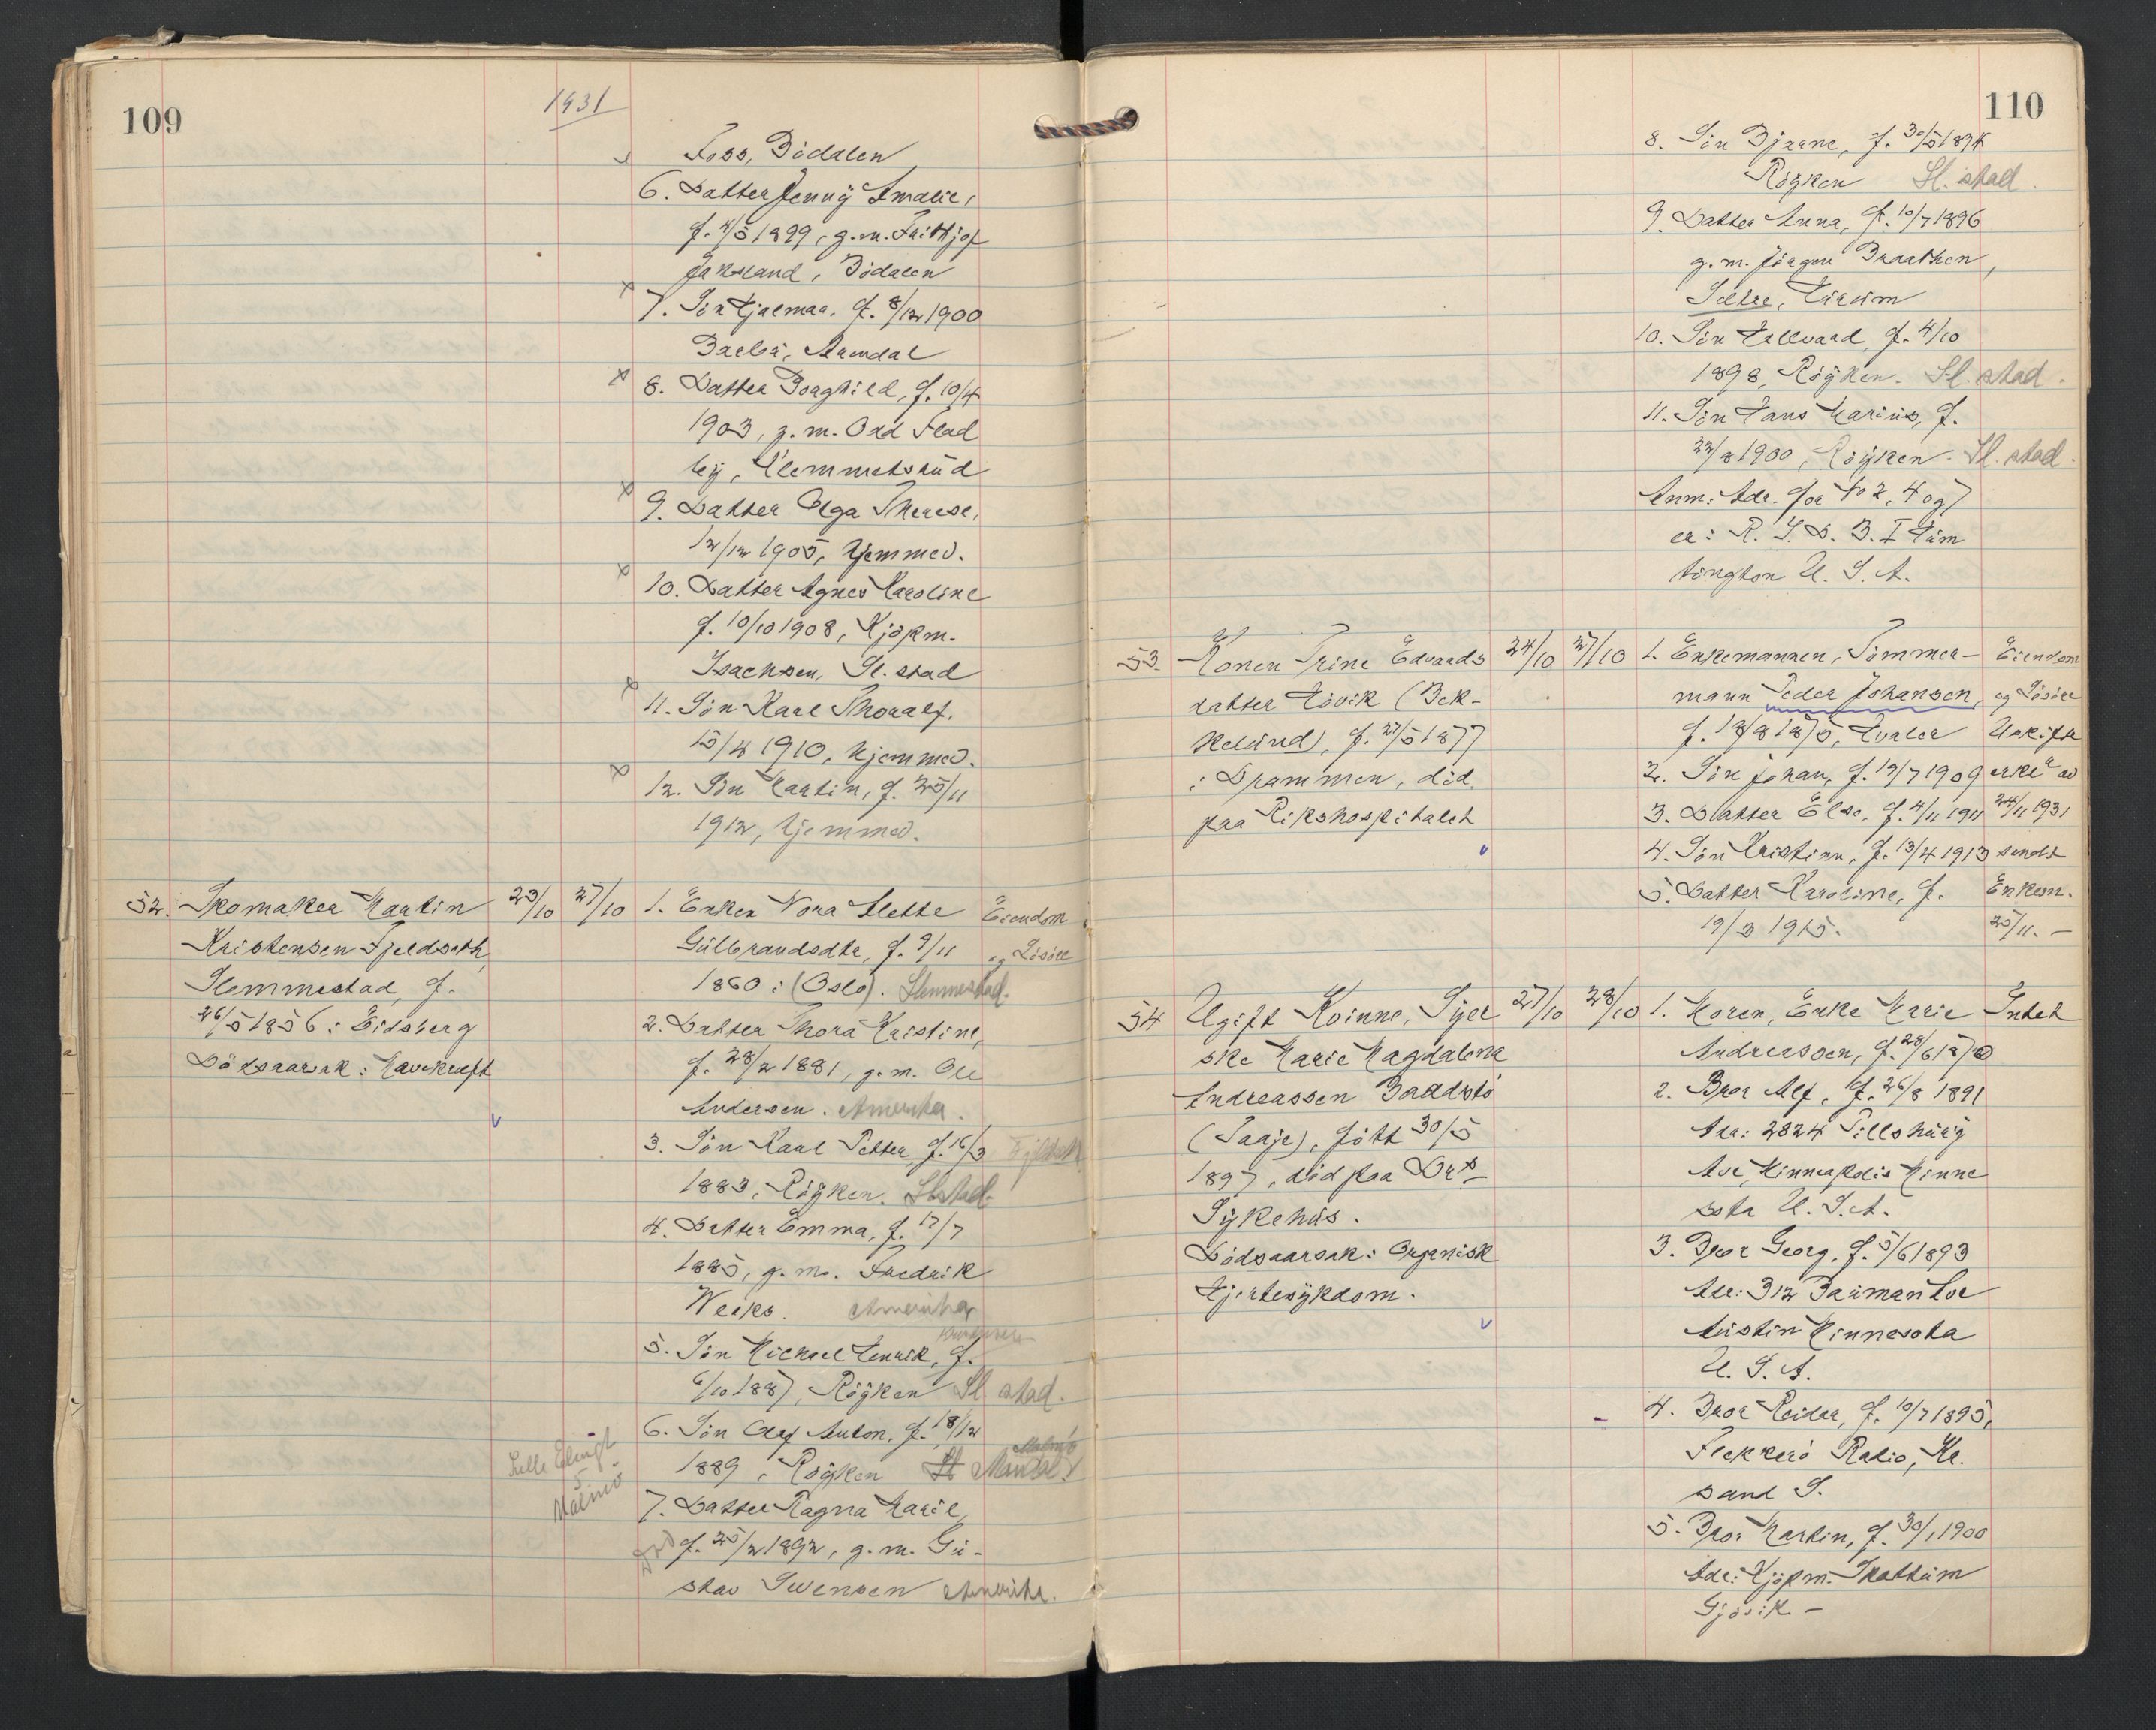 109
1931
Foss, Bödalen
6. Datter Jenny Amalie,
f. 4/5 1899, g. m. Frithjof
Jaksland, Bödalen
7. Sön Hjalmar, f. 8/12 1900
Barbu, Arendal
8. Datter Borghild, f. 10/4
1903, g. m. Odd Flad
by, Klemmetsrud
9. Datter Olga Therese,
12/12 1905, hjemmev.
10. Datter Agnes Karoline
f. 10/10 1908, Kjöpm.
Isachsen, Sl. stad
11. Sön Karl Thoralf,
15/4 1910, hjemmev.
12. Sön Martin, f. 25/11
1912, hjemmev.
52. Skomaker Martin 23/10 27/10 1. Enken Nora Mette Eiendom
Kristensen Fjeldseth, Gulbrandsdtr, f. 9/11 og Lösöre
Slemmestad, f. 1860 i (Oslo). Slemmestad.
26/5 1856 i Eidsberg 2. Datter Thora Kristine,
Dödsaarsak: Mavekreft f. 28/2 1881, g. m. Ole
Andersen. Amerika.
3. Sön Karl Petter f. 16/3 Fjeldseth
1883, Röyken. Sl.stad
4. Datter Emma, f. 17/7
1885, g. m. Fredrik
Weeks. Amerika
5. Sön Michael Henrik, f.
6/10 1887, Röyken Sl. stad.
6. Sön Olaf Anton, f. 18/12
Malmö
1889, Röyken St
Malmö
7. Datter Ragna Marie,
Död f. 25/2 1892, g. m. Gu-
stav Swensen Amerika.
110
8. Sön Bjarne, f. 30/5 1894
Röyken Sl. stad.
9. Datter Anna, f. 10/7 1896
g. m. Jörgen Braathen,
Sætre, Hurum
10. Sön Hallvard, f. 4/10
1898, Röyken. Sl. stad.
11. Sön Hans Marius, f.
22/8 1900, Röyken. Sl. stad.
Anm: Adr. for No 2, 4 og 7
er: R. F. D. B. I Hun
tington U. S. A.
53. Konen Trine Edvards 24/10 27/10 1. Enkemannen, Tömmer- Eiendom
datter Hövik (Bek- mann Peder Johansen, og Lösöre
kelund), f. 27/5 1877 f. 18/8 1875, Hvaler Uskifte
i Drammen, död 2. Sön Johan, f. 19/7 1909 erkl. av
paa Rikshospitalet 3. Datter Else, f. 4/11 1911 24/11 1931
4. Sön Kristian, f. 13/4 1913 sendt
5. Datter Karoline, f. Enkem.
19/3 1915. 25/11. –
54 Ugift Kvinne, Syer 27/10 28/10 1. Moren, Enke Marie Intet
ske Marie Magdalena Andreassen, f. 28/6 1870
Andreassen Bordstö 2. Bror Alf, f. 26/8 1891
(Taaje), fött 30/5 Adr: 2824 Pillsbury
1897, död paa Dr.s Ave, Minneapolis Minne
Sykehus. sota U. S. A.
Dödsaarsak: Organisk 3. Bror Georg, f. 5/6 1893
Hjertesykdom. Adr: 312 Bauman Ave
Austin Minnesota
U. S. A.
4. Bror Reidar, f. 10/7 1895,
Flekkerö Radio, Kr.
sand S.
5. Bror Martin, f. 30/1 1900
Adr: Kjöpm. Skattum
Gjövik –